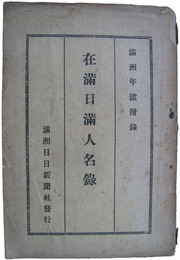 滿洲年鑑附錄
在滿日滿人名錄
滿洲日日新聞社發行